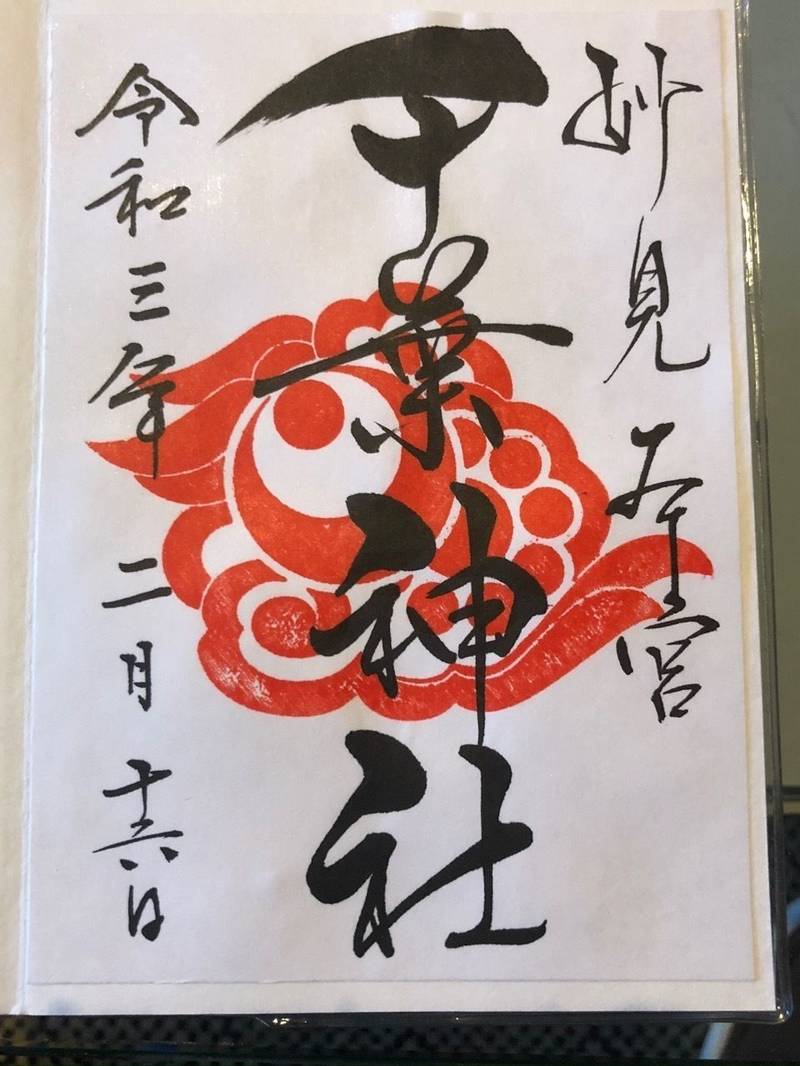 妙見本宮
千葉神社
令和三年二月十六日